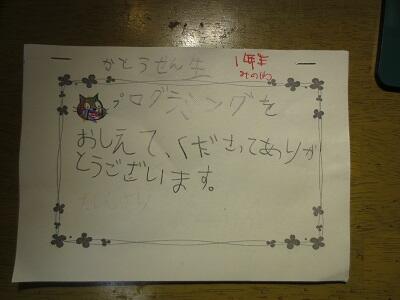 かとうせん生
1年生
みのわ
プログラミングを
おしえて、くださってありが
とうございます。